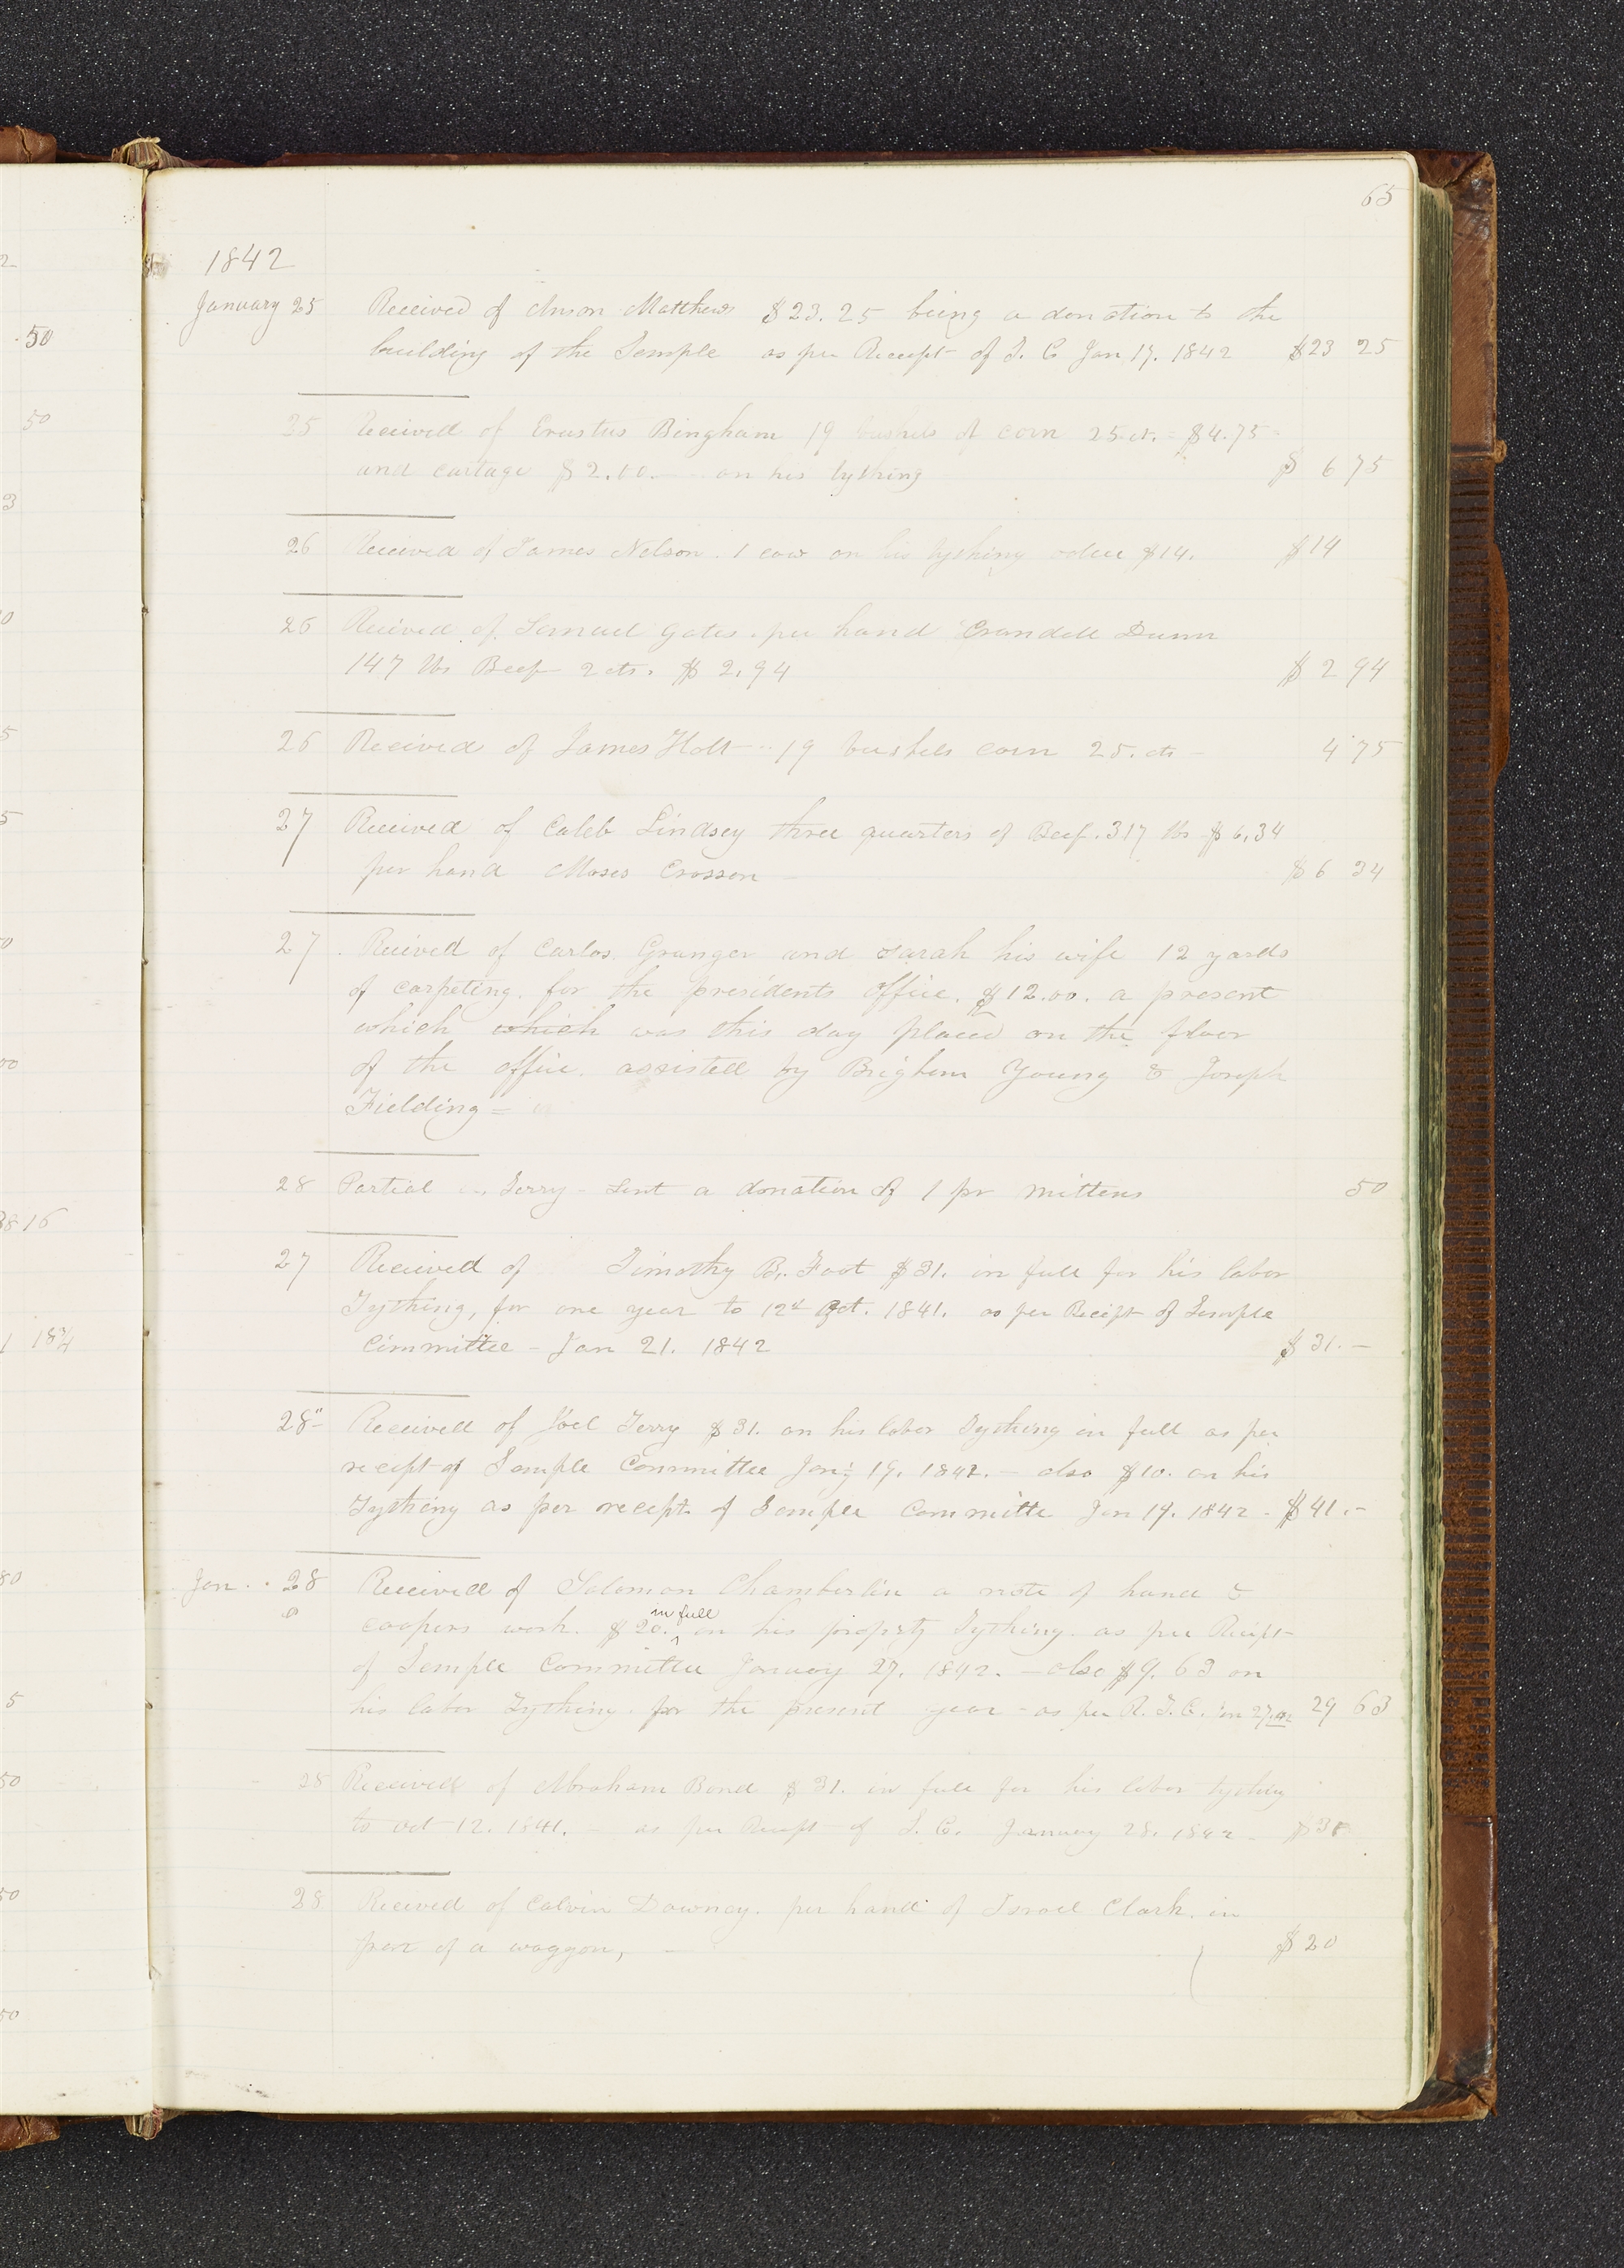 65
1842
January 25 Received of Anson Matthews $23.25 being a donation to the
building of the Temple as per Receept of T. C Jan 17. 1842 $23 25
25 Received of Erastus Bingham 19 bushels of corn 25 ct. = $4.75 =
and cartage $2.00.— on his tything $ 6 75
26 Received of James Nelson. 1 cow on his tything value $14. $14
26 Reeived of Samuel Gates. per hand Crandell Dunn
147 lbs Beef 2 cts. $ 2.94 $ 2 94
26 Received of James Holt — 19 bushels corn 25. cts — 4 75
27 Received of Caleb Lindsey three quarters of Beef. 317 lbs $6,34
per hand Moses Crosson $6 34
27 Reeived of Carlos Granger and Sarah his wife 12 yards
of carpeting. for the presidents office. $12.00. a present
which which was this day placed on the floor
of the office. assisted by Brigham Young & Joseph
Fielding =
28 Partial Terry - Sent a donation of 1 pr mittens 50
27 Received of Timothy B. Foot $31. in full for his labor
Tything, for one year to 12th Oct. 1841. as per Receipt of Temple
Committee - Jan 21. 1842 $31.—
28" Received of Joel Terry $31. on his labor Tything in full as per
receipt of Temple Committee Jan'y 19. 1842. — also $10. on his
Tything as per receipt of Temple Committe Jan 19. 1842 - $41.-
Jan. 28 Received of Solomon Chamberlin a note of hand &
coopers work. $20. in full on his property Tything. as per Receipt
of Temple Committee January 27. 1842. — also $9. 63 on
his labor Tything for the present year - as per R. T. C. 27. 42 29 63
28 Received of Abraham Bond $31. in full for his labor tything
to Oct 12. 1841. — as per Receipt of T. C. January 28. 1842 - $31
28 Reeived of Calvin Downey. per hand of Israel Clark. in
part of a waggon, — $20
50
50
3
3816
50
50
50